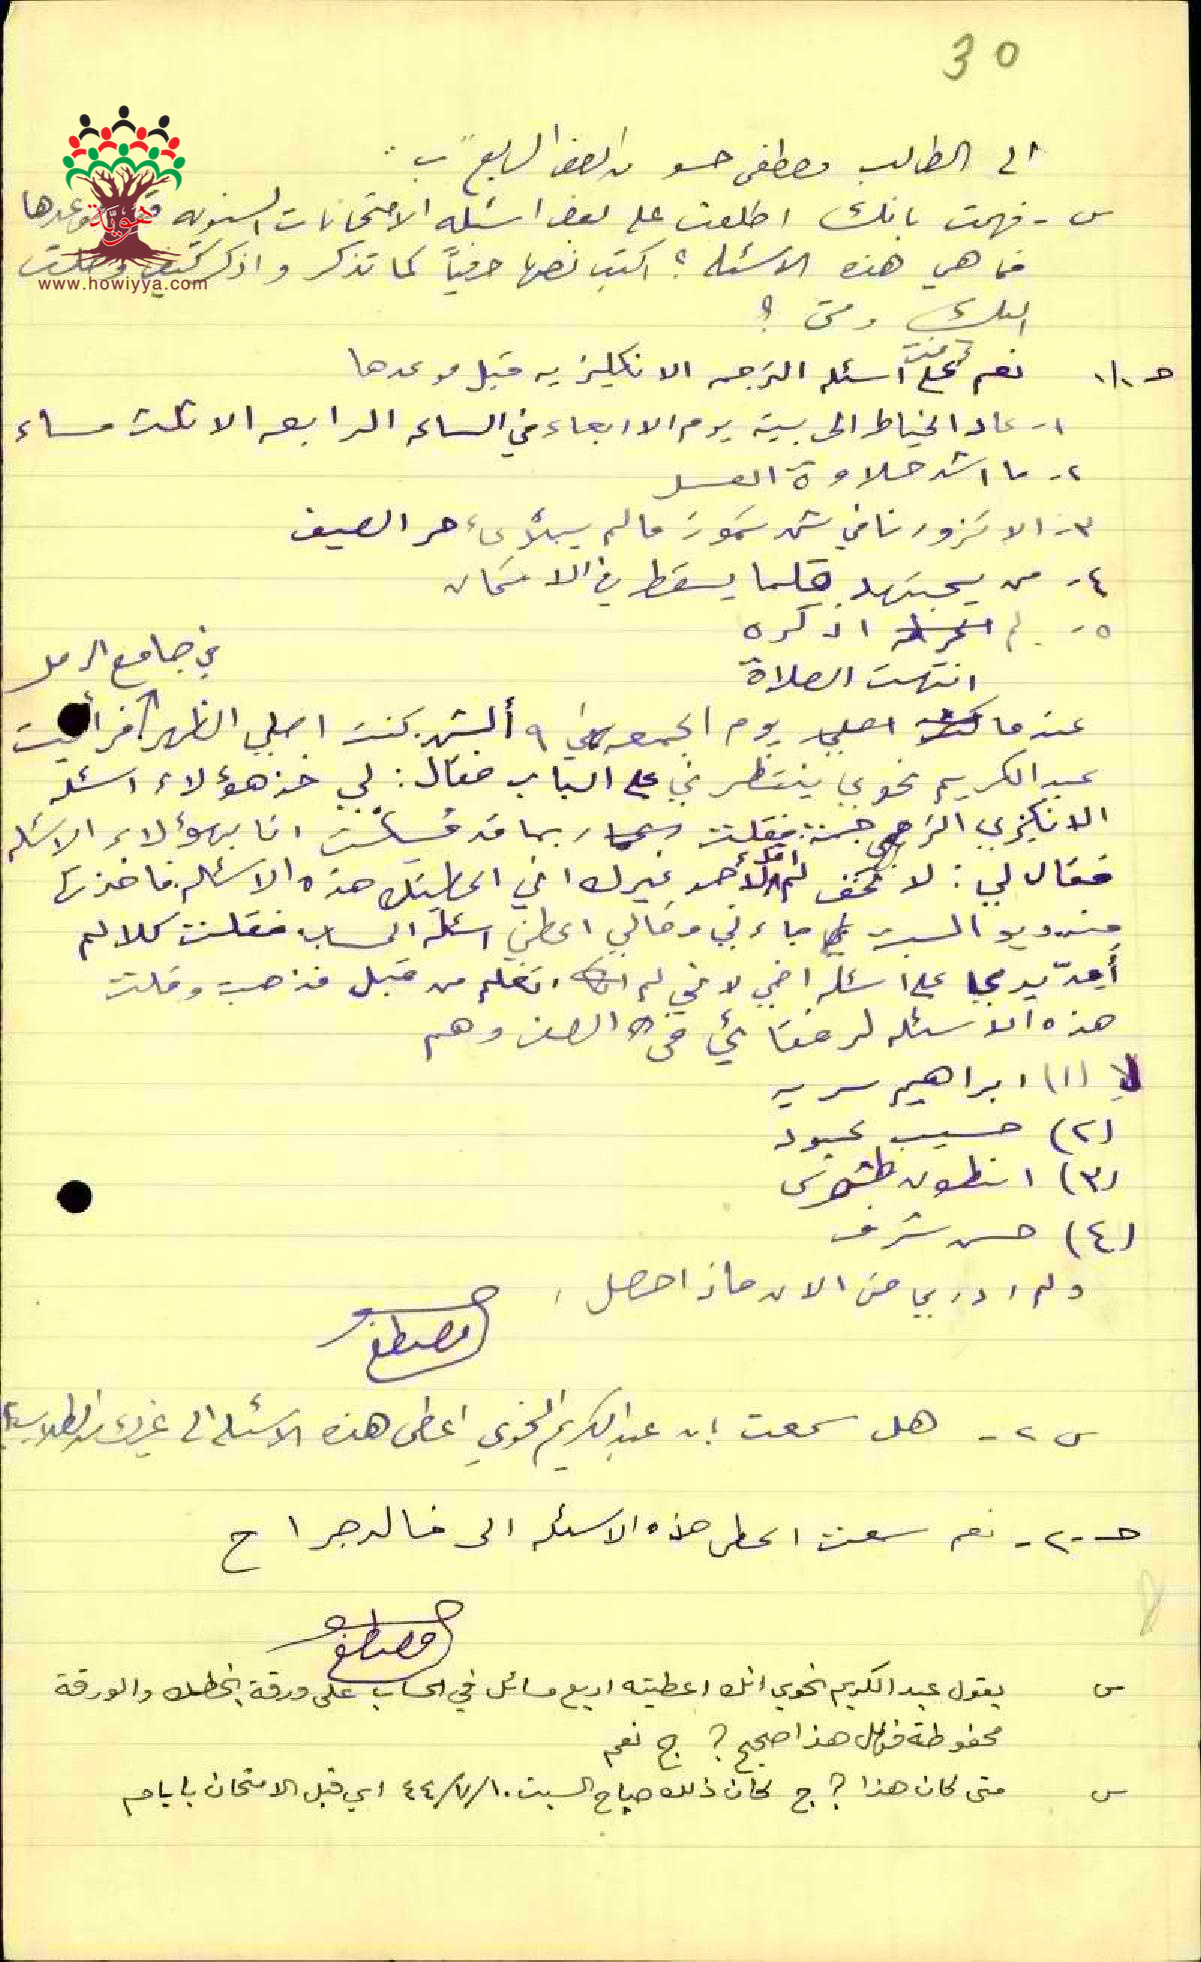 30
هوية
www.howiyya.com
الى الطالب مصطفى حسو من الصف السابع "ب":
س - فهمت بانك اطلعت على بعض اسئلة الامتحانات السنوية قبل موعدها
فما هي هذه الاسئله ؟ اكتب نصها حرفياً كما تذكر و اذكر كيف وصلت
اليك ومتى ؟
ج ـ ١. نعم عرفت اسئله الترجمه الانكليزيه قبل موعدها
١- عاد الخياط الى بيته يوم الاربعاء في الساعه الرابعه الا ثلث مساء
٢- ما اشد حلاوة العسل
٣- الا تزورنا في شهر تموز ما لم يبدأ حر الصيف
٤- من يجتهد قلما يسقط في الامتحان
٥- لم اذكره
انتهت الصلاة في جامع الرمل
عندما يوم الجمعه في ٩ ألشهر كنت اصلي الظهر فرأيت
عبد الكريم نحوي ينتظرني على الباب فقال: لي خذ هؤلاء اسئله
الانكليزي الترجمة فقلت ربما قد مُسكت انا بهؤلاء الاسئله
فقال لي: لا تخف لم اقل لأحد غيرك اني اعطيتك هذه الاسئله فاخذتها
وفي يوم السبت جاءني وقالي اعطني اسئلة الحساب فقلت كلا لم
أمدّ يدي على اسئله اخي لاني لم اتعلم من قبل فذهبت وقلت
هذه الاسئله لرفقائي في الصف وهم
(١) ابراهيم سريه
(٢) حسيب عبود
(٣) انطون
(٤) حسن شرف
ولم ادري من الان ماذا حصل .
مصطفى حسو
س ٢ - هل سمعت ان عبد الكريم النحوي اعطى هذه الاسئله الى غيرك من الطلاب؟
ج - ٢ - نعم سمعت اعطى هذه الاسئله الى خالد جراح
مصطفى حسو
س يقول عبد الكريم نحوي انك اعطيته اربع مسائل في الحساب على ورقة بخطك والورقة
محفوظة فهل هذا صحيح ؟ ج نعم
س متى كان هذا ؟ ج كان ذلك صباح السبت ١٠/٧/٤٤ اي قبل الامتحان بايام